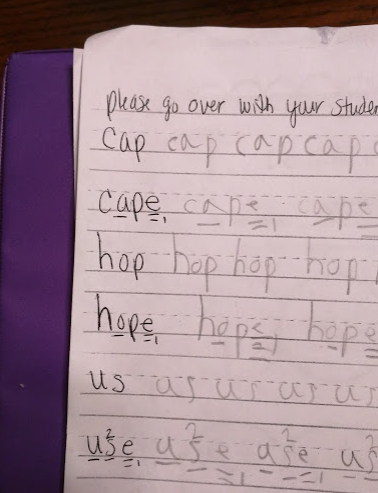 please go over with your studen
Cap cap cap cap c
cape, cape cape
hop hop hop hop
hope, hope, hope
us us us us us
use, use use us